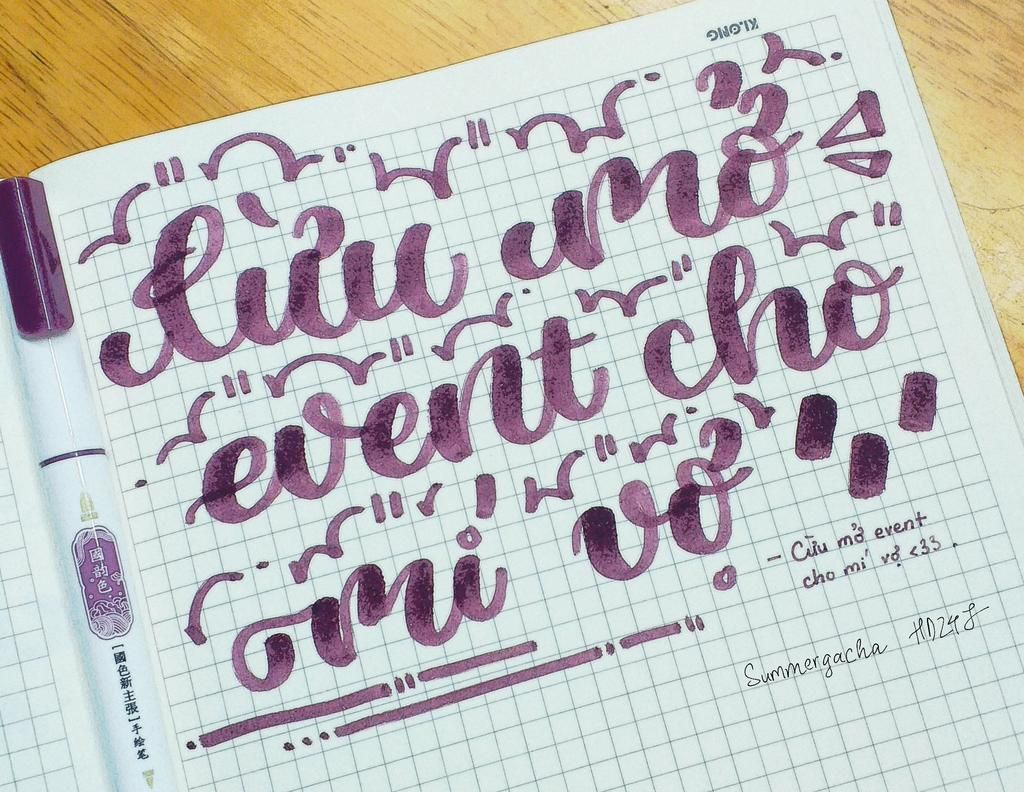 KLONG
Cừu mở
event cho
mí vợ
- Cừu mở event
cho mí vợ <33.
Summergacha HD24J
國韵色
[國色新主張]手绘笔